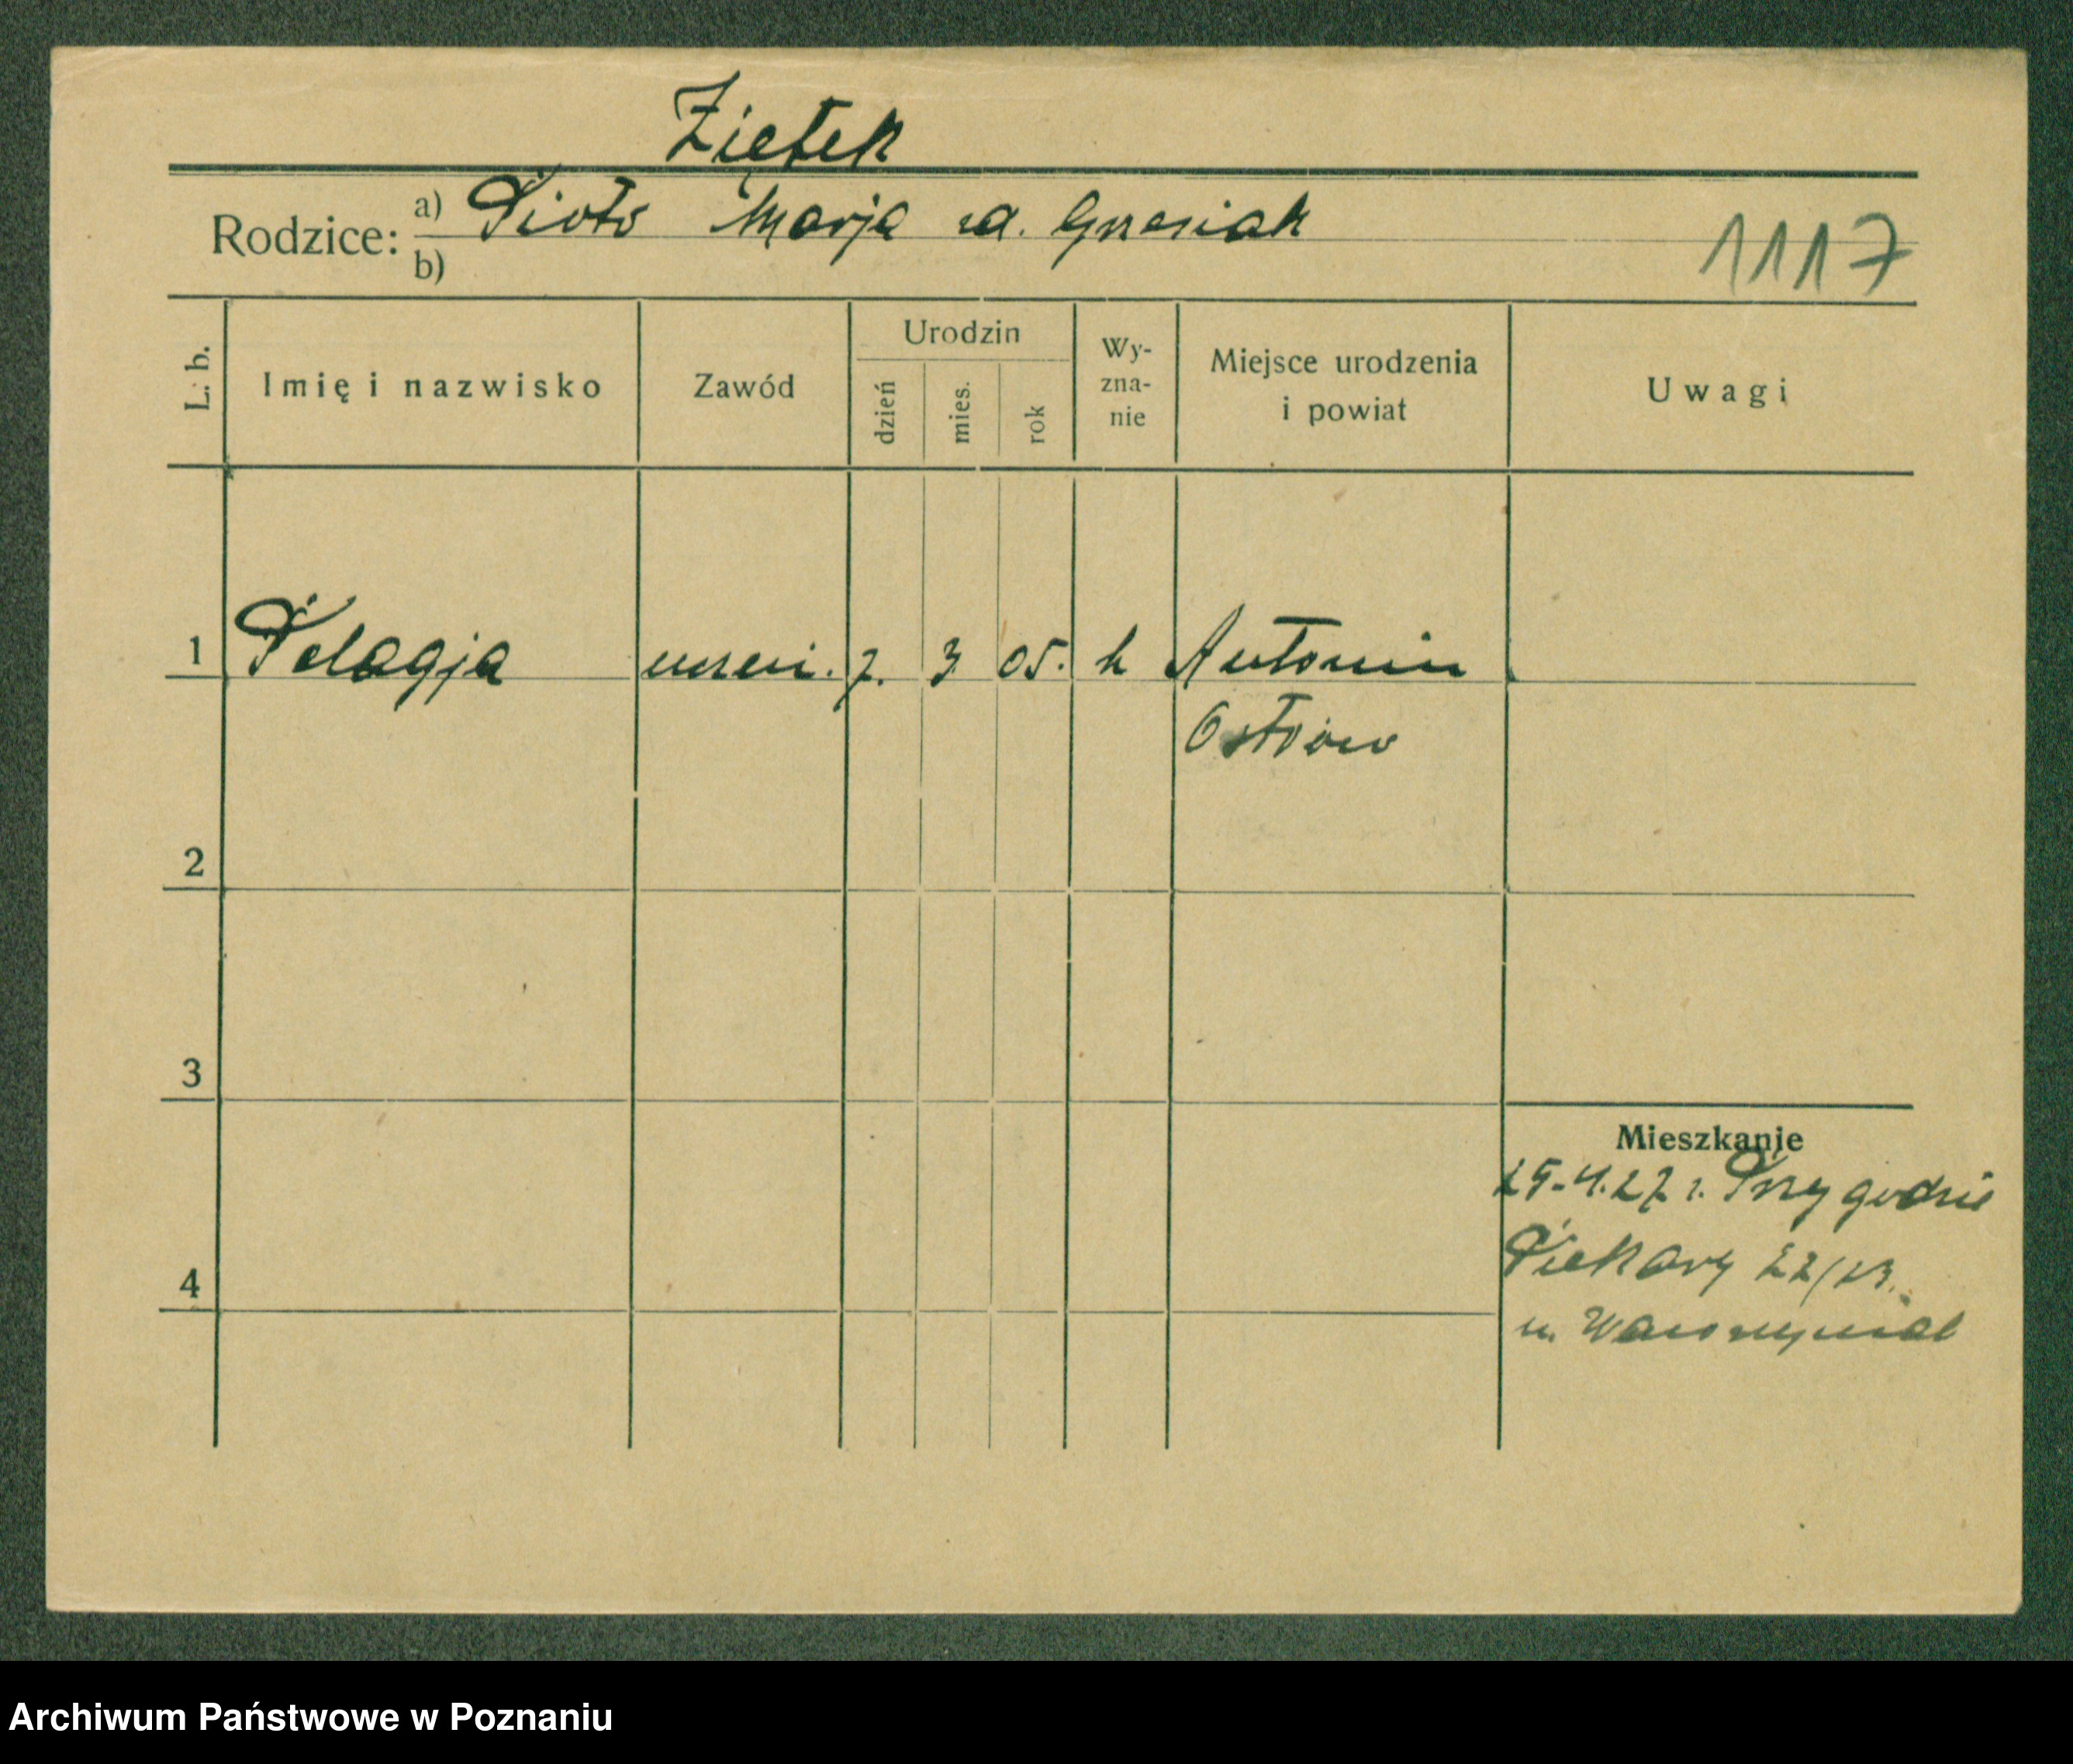 Ziętek
Rodzice: a) Piotr Marja zd. Grzesiak
b)
1117
L. b. Imię i nazwisko Zawód Urodzin dzień mies. rok Wy-zna-nie Miejsce urodzenia i powiat Uwagi
1 Pelagja 7. 3 05. k Antonin
Ostrów
2
3
Mieszkanie
25.4.27 r. Przygodzie
Piekary 22/23.
4
u.
Archiwum Państwowe w Poznaniu